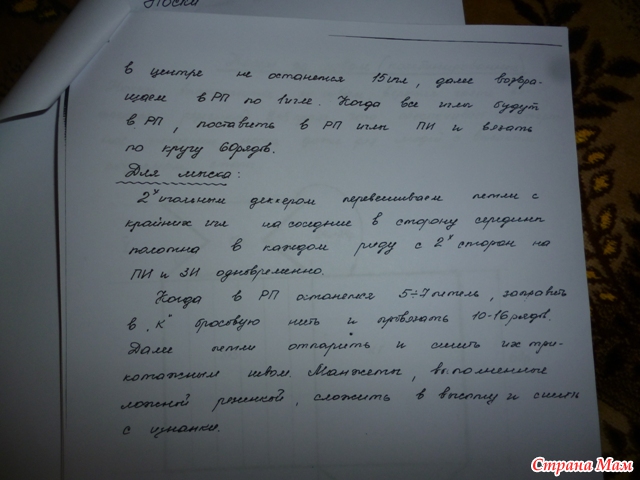 Носки
в центре не останется 15 игл, далее возвра-
щаем в РП по 1игле. Когда все иглы будут
в РП, поставить в РП иглы ПИ и вязать
по кругу 60рядов.
Для мыска:
2х игольным деккером перевешиваем петли с
крайних игл на соседние в сторону середины
полотна в каждом ряду с 2х сторон на
ПИ и ЗИ одновременно.
Когда в РП останется 5÷7 петель, заправить
в "К" бросовую нить и провязать 10-16 рядов.
Далее петли отпарить и сшить их три-
котажным швом. Манжеты, выполненные
ложной резинкой, сложить в высоту и сшить
с изнанки.
Страна Мам